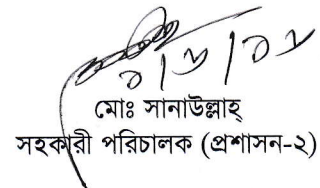 মোঃ সানাউল্লাহ্
সহকারী পরিচালক (প্রশাসন-২)